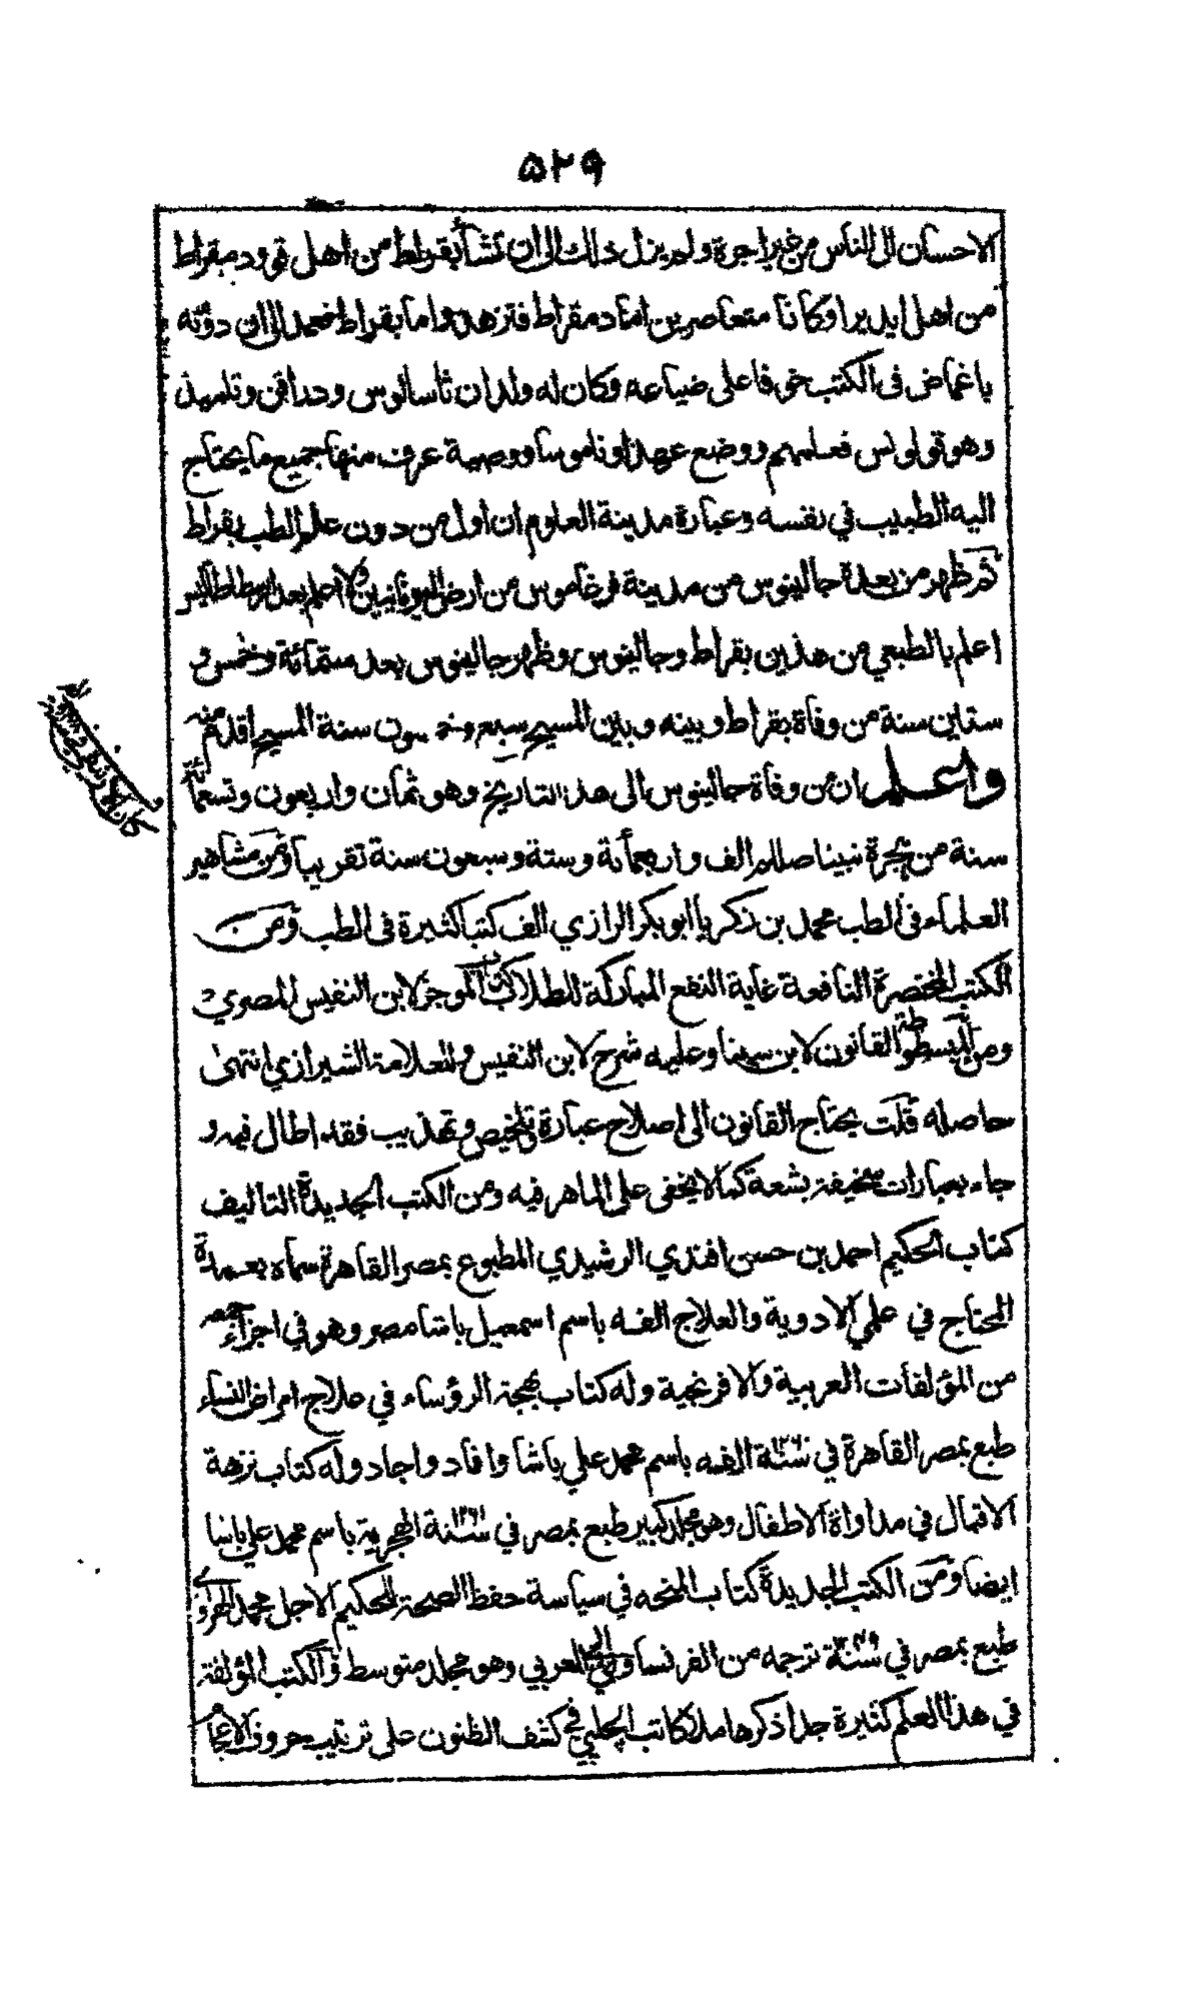 ٥٢٩
الاحسان الى الناس من غير اجرة ولم يزل ذلك الى ان نشأ بقراط من اهل قو ودمقراط
من اهل ابديرا وكانا متعاصرين اما دمقراط فتزهد واما بقراط فعمد الى ان دونه
باغماض في الكتب خوفا على ضياعه وكان له ولدان ثاسالوس ودراقن وتلميذ
وهو قولوبس فعلمهم ووضع عهدا وناموسا ووصية عرف منها جميع ما يحتاج
اليه الطبيب في نفسه وعبارة مدينة العلوم ان اول من دون علم الطب بقراط
ثم ظهر من بعده جالينوس من مدينة فرغاموس من ارض اليونانيين ولا اعلم بعد ارسطاطاليس
اعلم بالطبعي من هذين بقراط وجالينوس وظهر جالينوس بعد ستمائة وخمس و
ستين سنة من وفاة بقراط وبينه وبين المسيح سبع وخمسون سنة المسيح اقدم منه
واعلم ان من وفاة جالينوس الى هذا التاريخ وهو ثمان واربعون وتسعمائة
سنة من هجرة نبينا صللم الف واربعمائة وستة وسبعون سنة تقريبا ومن مشاهير
العلماء في الطب محمد بن زكريا ابو بكر الرازي الف كتبا كثيرة في الطب ومن
الكتب المختصرة النافعة غاية النفع المباركة للطلاب كتاب الموجز لابن النفيس المصري
ومن المبسوطة القانون لابن سينا وعليه شرح لابن النفيس وللعلامة الشيرازي انتهى
حاصله قلت يحتاج القانون الى اصلاح عبارة وتلخيص وتهذيب فقد اطال فيه و
جاء بعبارات سخيفة بشعة كما لا يخفى على الماهر فيه ومن الكتب الجديدة التاليف
كتاب الحكيم احمد بن حسن افندي الرشيدي المطبوع بمصر القاهرة سماه بعمدة
المحتاج في علمي الادوية والعلاج الفه باسم اسمعيل باشا مصر وهو في اجزاء
من المؤلفات العربية والافرنجية وله كتاب بهجة الرؤساء في علاج امراض النساء
طبع بمصر القاهرة في سنة الفه باسم محمد علي باشا وافاد واجاد وله كتاب نزهة
الاقبال في مداواة الاطفال وهو مجلد كبير طبع بمصر في سنة الهجرية باسم محمد علي باشا
ايضا ومن الكتب الجديدة كتاب المنحه في سياسة حفظ الصحة للحكيم الاجل محمد الهراوي
طبع بمصر في سنة ترجمه من الفرنساوي الى العربي وهو مجلد متوسط والكتب المؤلفة
في هذا العلم كثيرة جدا ذكرها ملا كاتب الجلبي في كشف الظنون على ترتيب حروف الاعجام